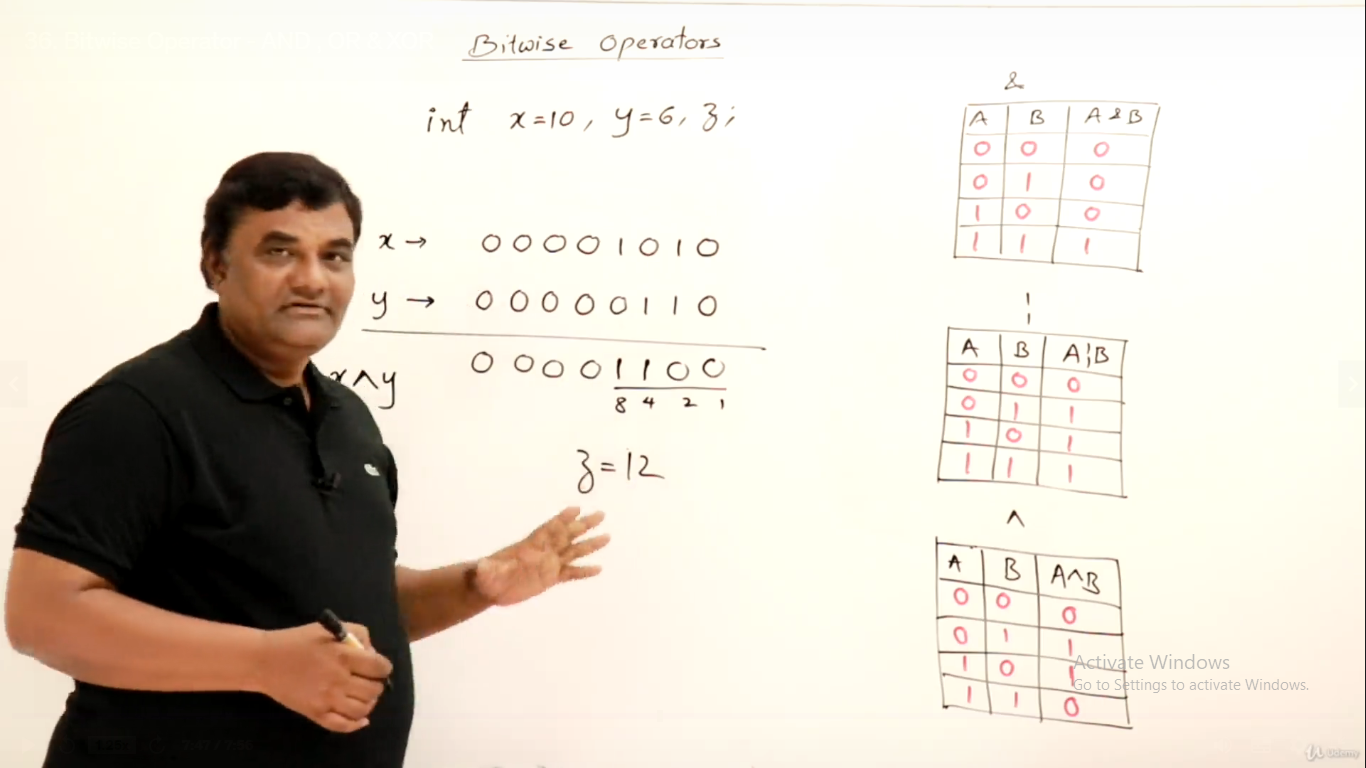 Bitwise Operators
int x=10, y=6, z;
x → 0 0 0 0 1 0 1 0
y → 0 0 0 0 0 1 1 0
x∧y 0 0 0 0 1 1 0 0
8 4 2 1
z=12
&
A B A&B
0 0 0
0 1 0
1 0 0
1 1 1
¦
A B A¦B
0 0 0
0 1 1
1 0 1
1 1 1
∧
A B A∧B
0 0 0
0 1 1
1 0 1
1 1 0
Activate Windows
Go to Settings to activate Windows.
Udemy